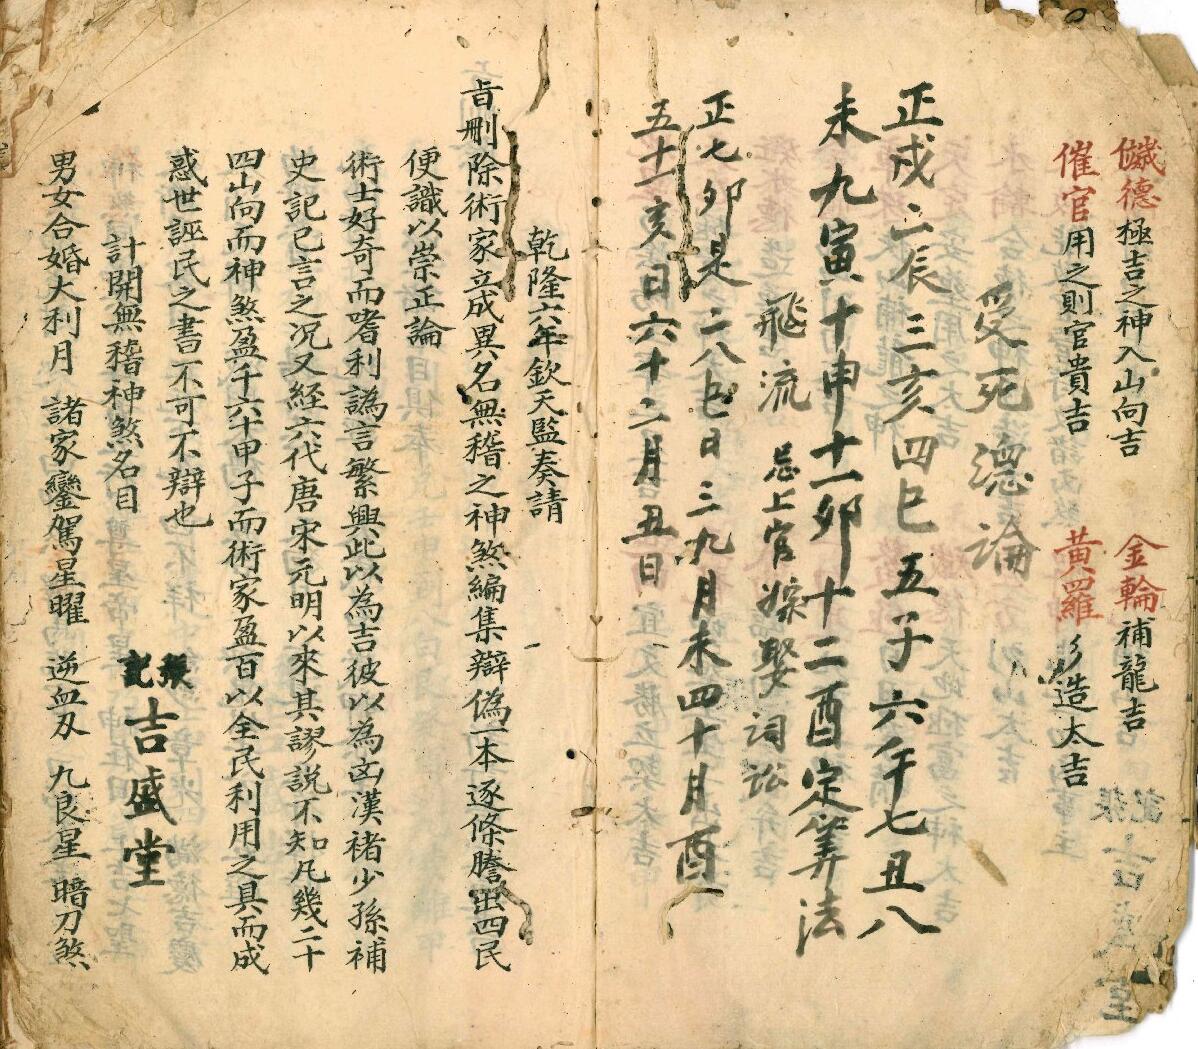 德極吉之神入山向吉　金輪補龍吉
催官用之則官貴吉　黃羅修造太吉
受死總論
正戍二辰三亥四巳五子六午七丑八
未九寅十申十一卯十二酉定筭法
飛流　忌上官嫁娶詞訟
正七卯是二八巳日三九月未四十月酉
五十一亥日六十二月丑日
乾隆六年欽天監奏請
旨刪除術家立成異名無稽之神煞編集辯偽一本逐條謄出四民
便識以崇正論
術士好奇而嗜利譌言繁興此以為吉彼以為凶漢褚少孫補
史記已言之况又經六代唐宋元明以來其謬說不知凡幾二十
四山向而神煞盈千六十甲子而術家盈百以全民利用之具而成
惑世誣民之書不可不辯也
計開無稽神煞名目
張記
吉盛堂
男女合婚大利月　諸家鑾駕星曜　逆血刃　九良星　暗刀煞